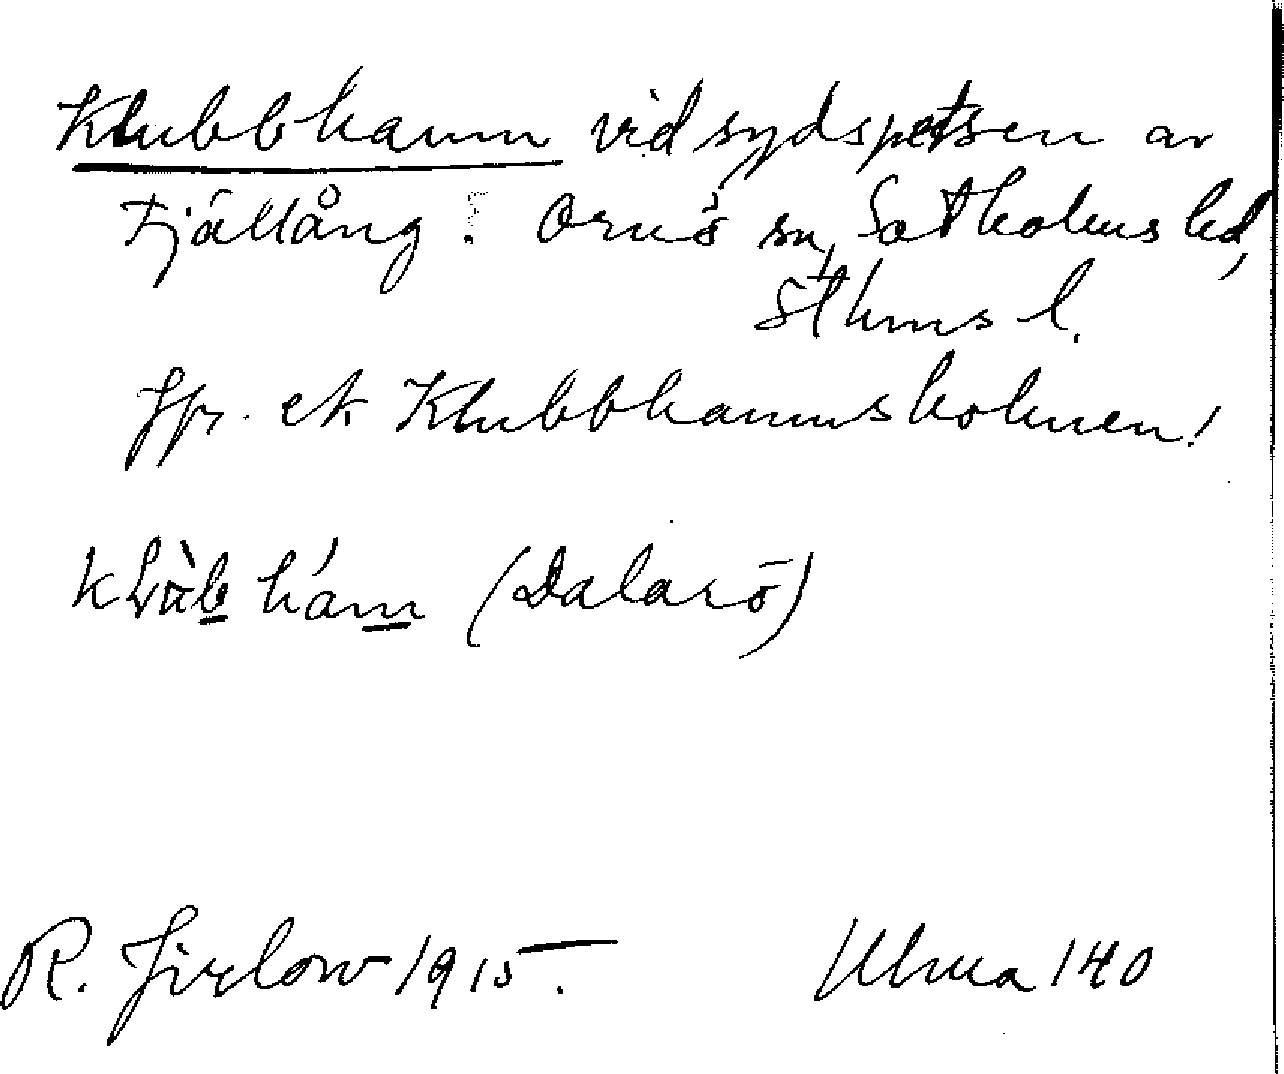 Klubbhamn vid sydspetsen av
Fjällång. Ornö sn, Sotholms hd,
Sthms l.
Jfr. ek Klubbhamnsholmen!
hám (Dalarö)
R. Jirlow 1915.	Ulma 140